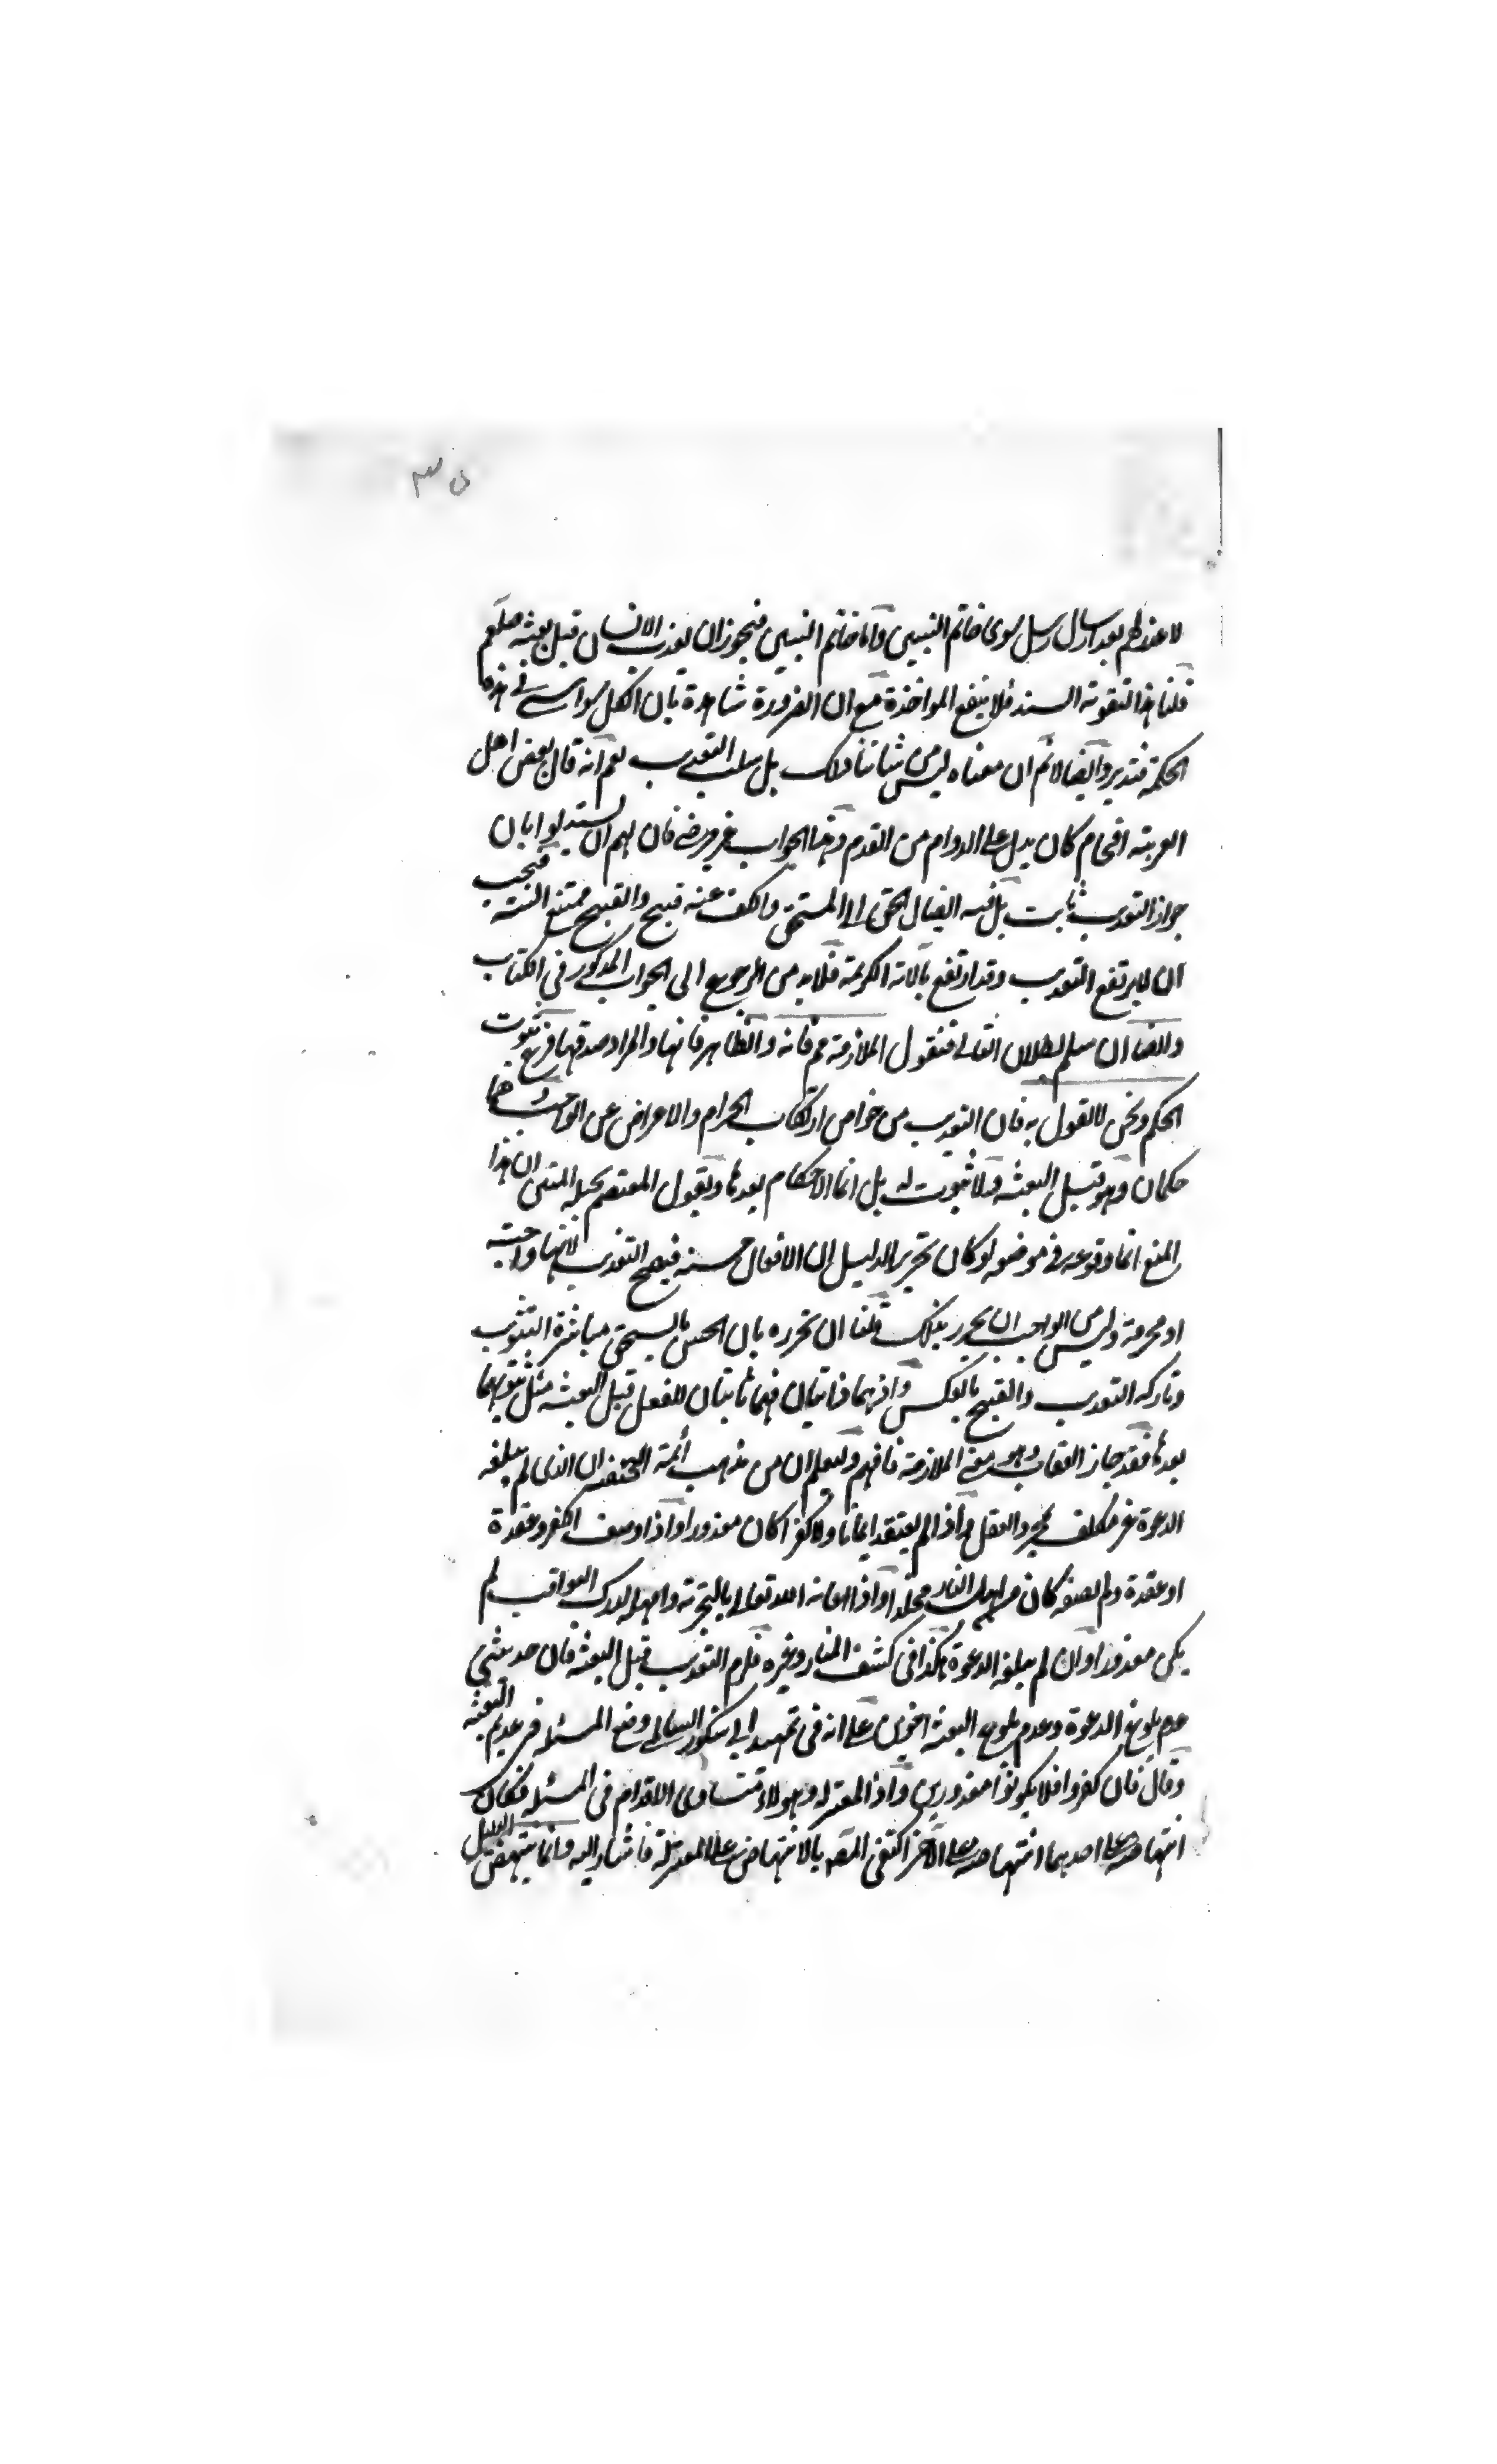 لا عذر لهم بعد ارسال رسل سوى خاتم النبيين واما خاتم النبيين فيجوز ان يعذب الانسان قبل بعثه صلعم
قلنا هذا لتقوية السند فلا ينفع المواخذة مع ان الضرورة شاهدة بان الكل سواسى في هذه
الحكمة فتدبر وايضا لانم ان معناه ليس من شاننا ذلك بل سلب التعذيب نعم انه قال بعض اهل
العربية اقحام كان يدل على الدوام من القدم وهذا الجواب غير مرضى فان لهم ان يستدلوا بان
جواز التعذيب ثابت بل فيه ايصال الحق الى المستحق والكف عنه قبيح والقبيح ممتنع البتة فيجب
ان لا يرتفع التعذيب وقد ارتفع بالاية الكريمة فلابد من الرجوع الى الجواب المذكور في الكتاب
وايضا ان سلم بطلان التالى فنقول الملازمة مم فانه والظاهر فانها والمراد صدقها فرع ثبوت
الحكم ونحن لا نقول به فان التعذيب من خواص ارتكاب الحرام والاعراض عن الواجب وهما
حكمان وهو قبل البعثة ولا ثبوت له بل انما الاحكام بعدها ويقول المعتصم بحبله المتين ان هذا
المنع انما وقوعه في موضعه لو كان تحرير الدليل ان الافعال حسنة فيصح التعذيب لانها واجبة
او محرمة وليس من الواجب ان يحرر بذلك قلنا ان نحرره بان الحسن ما يستحق مباشرة التثويب
وتاركه التعذيب والقبيح بالعكس واذ هما ذاتيان فهما ثابتان للفعل قبل البعثة مثل ثبوتهما
بعدها فقد جاز العقاب وهو معنى الملازمة فافهم وليعلم ان من مذهب أئمة الحنفية ان الذى لم يبلغه
الدعوة غير مكلف بمجرد العقل واذا لم يعتقد ايمانا ولا كفرا كان معذورا واذا وصف الكفر وعقده
او عقده ولم يصفه كان من اهل النار مخلدا واذا اعانه الله تعالى بالتجربة وامهله لدرك العواقب لم
يكن معذورا وان لم يبلغه الدعوة هكذا في كشف المنار وغيره فلزم التعذيب قبل البعثة فان حديثى
عدم بلوغ الدعوة وعدم بلوغ البعثة اخوين على انه في تمهيد ابى شكور السالمى وضع المسئلة في عديم البعثة
وقال فان كفروا فلا يكونوا معذورين واذ المعتزلة وهولاء متساوى الاقدام في المسئلة فكان
انتهاضه على احدهما انتهاضه على الآخر اكتفى المصـ بالانتهاض على المعتزلة فاشار اليه وانما ينتهض الدليل